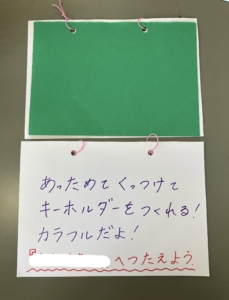 あっためて くっつけて
キーホルダーを つくれる!
カラフルだよ!
へつたえよう.